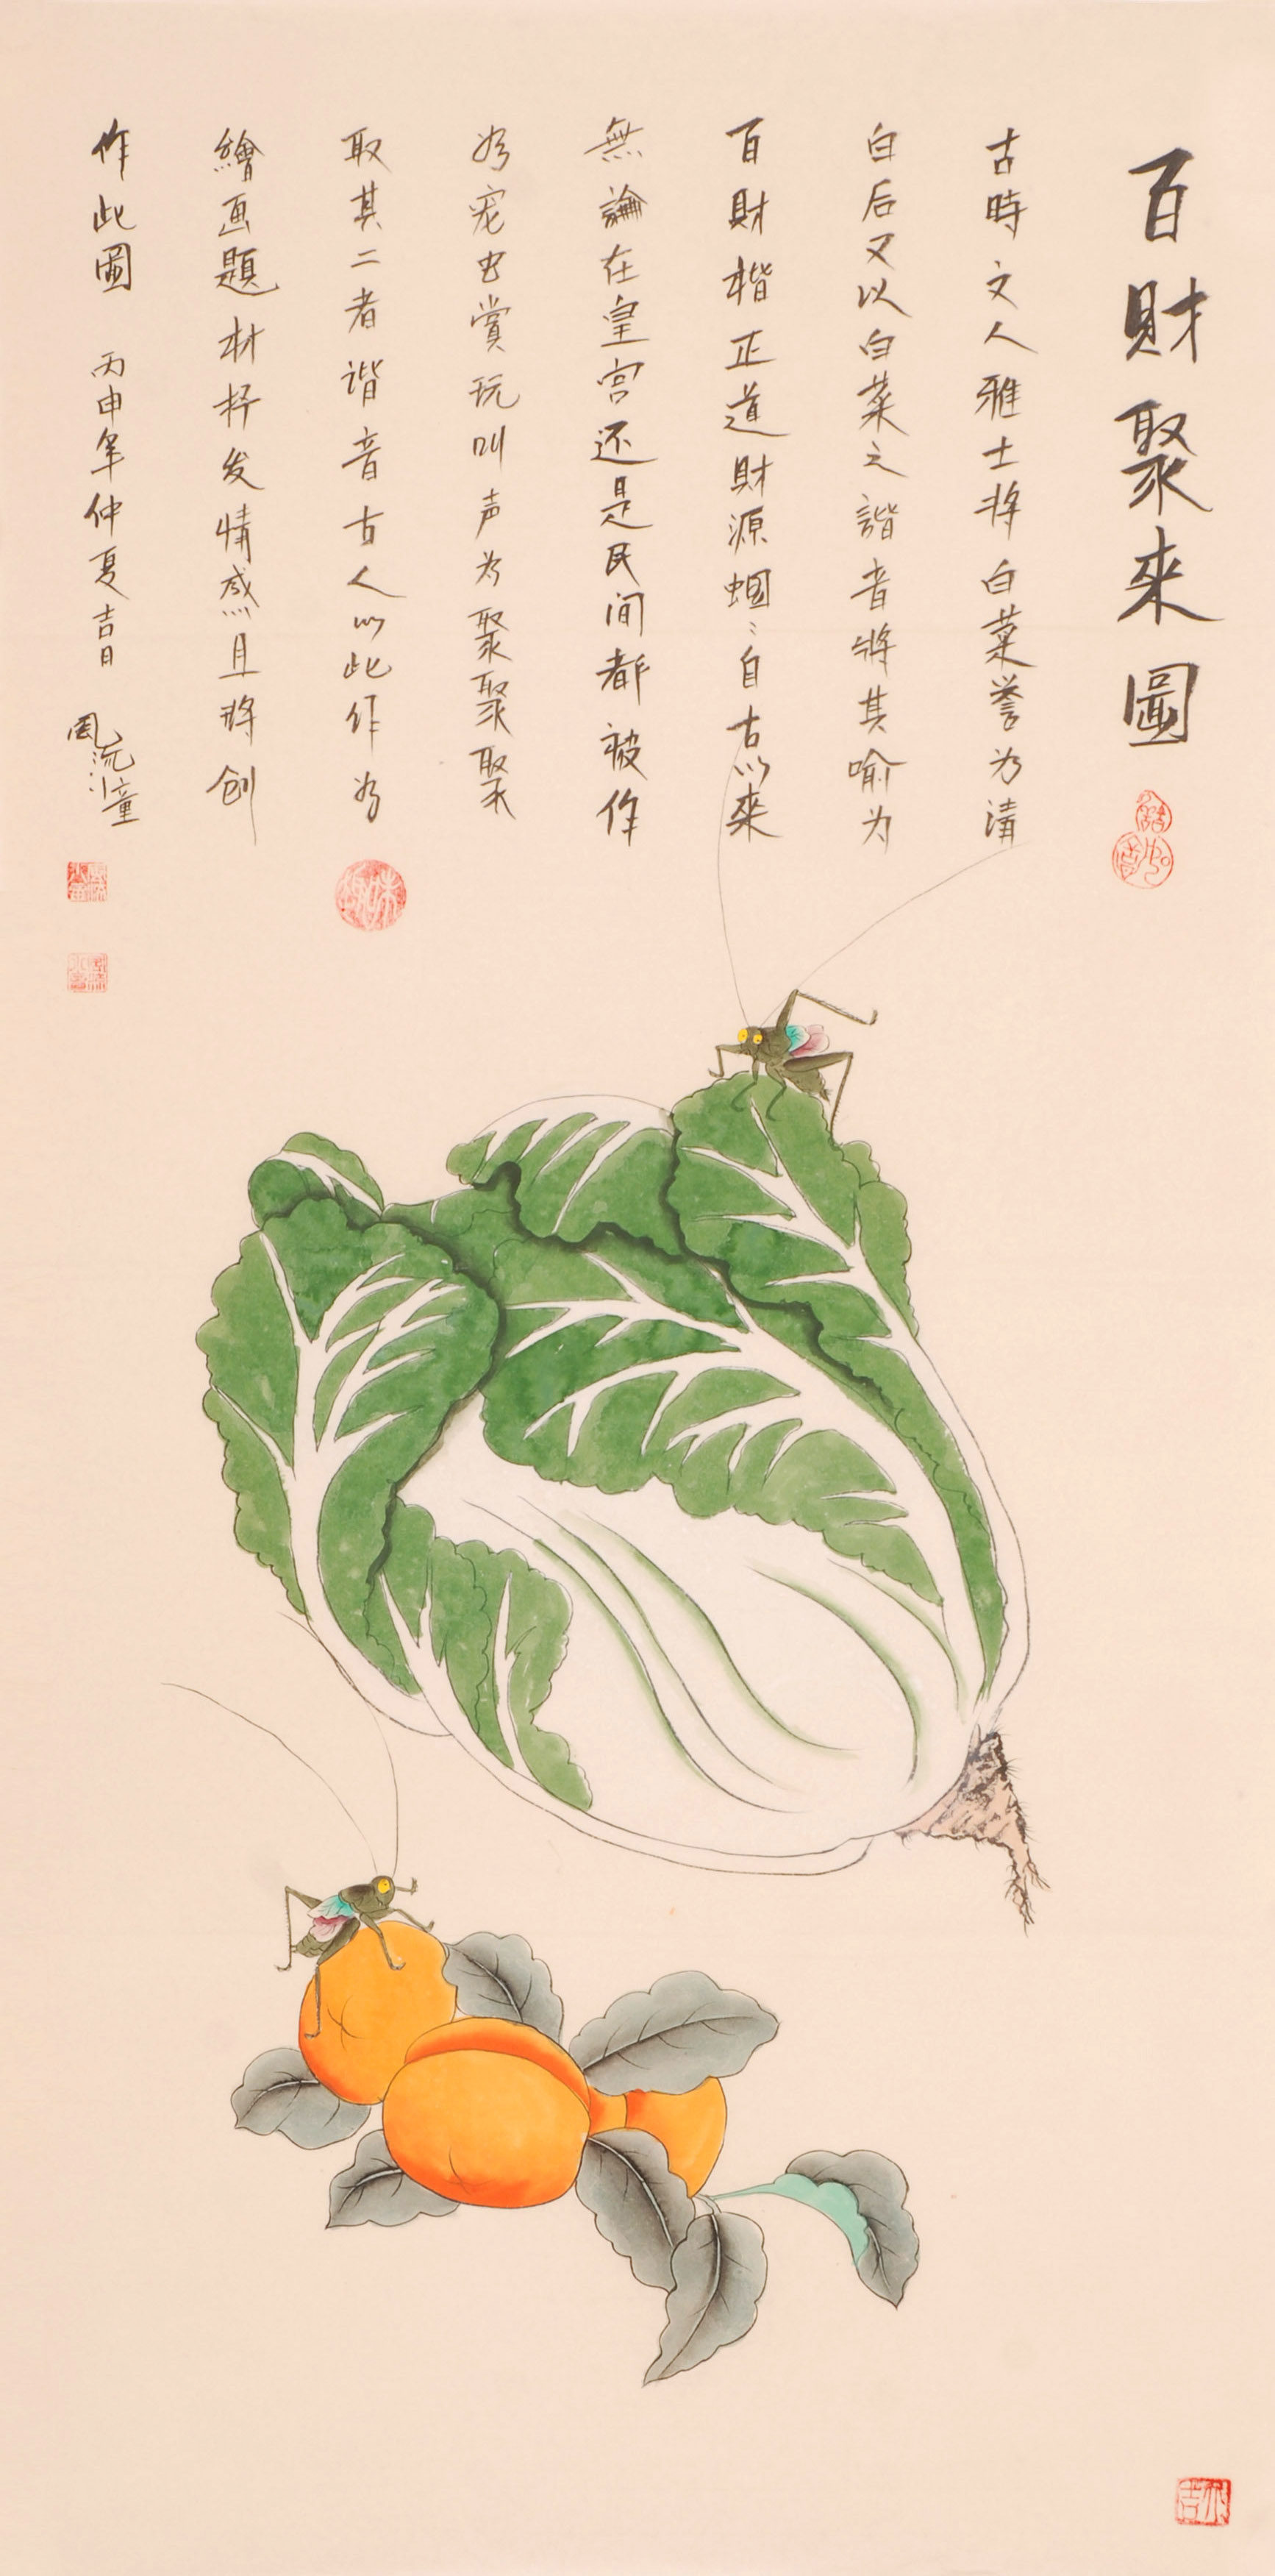 百財聚來圖
古時文人雅士将白菜誉为清
白后又以白菜之諧音將其喻为
百財楷正道財源蝈〻自古以來
無論在皇宫还是民间都被作
为宠虫賞玩叫声为聚聚聚
取其二者谐音古人以此作为
繪画題材抒发情感且将创
作此圖 丙申年仲夏吉日 風流小童